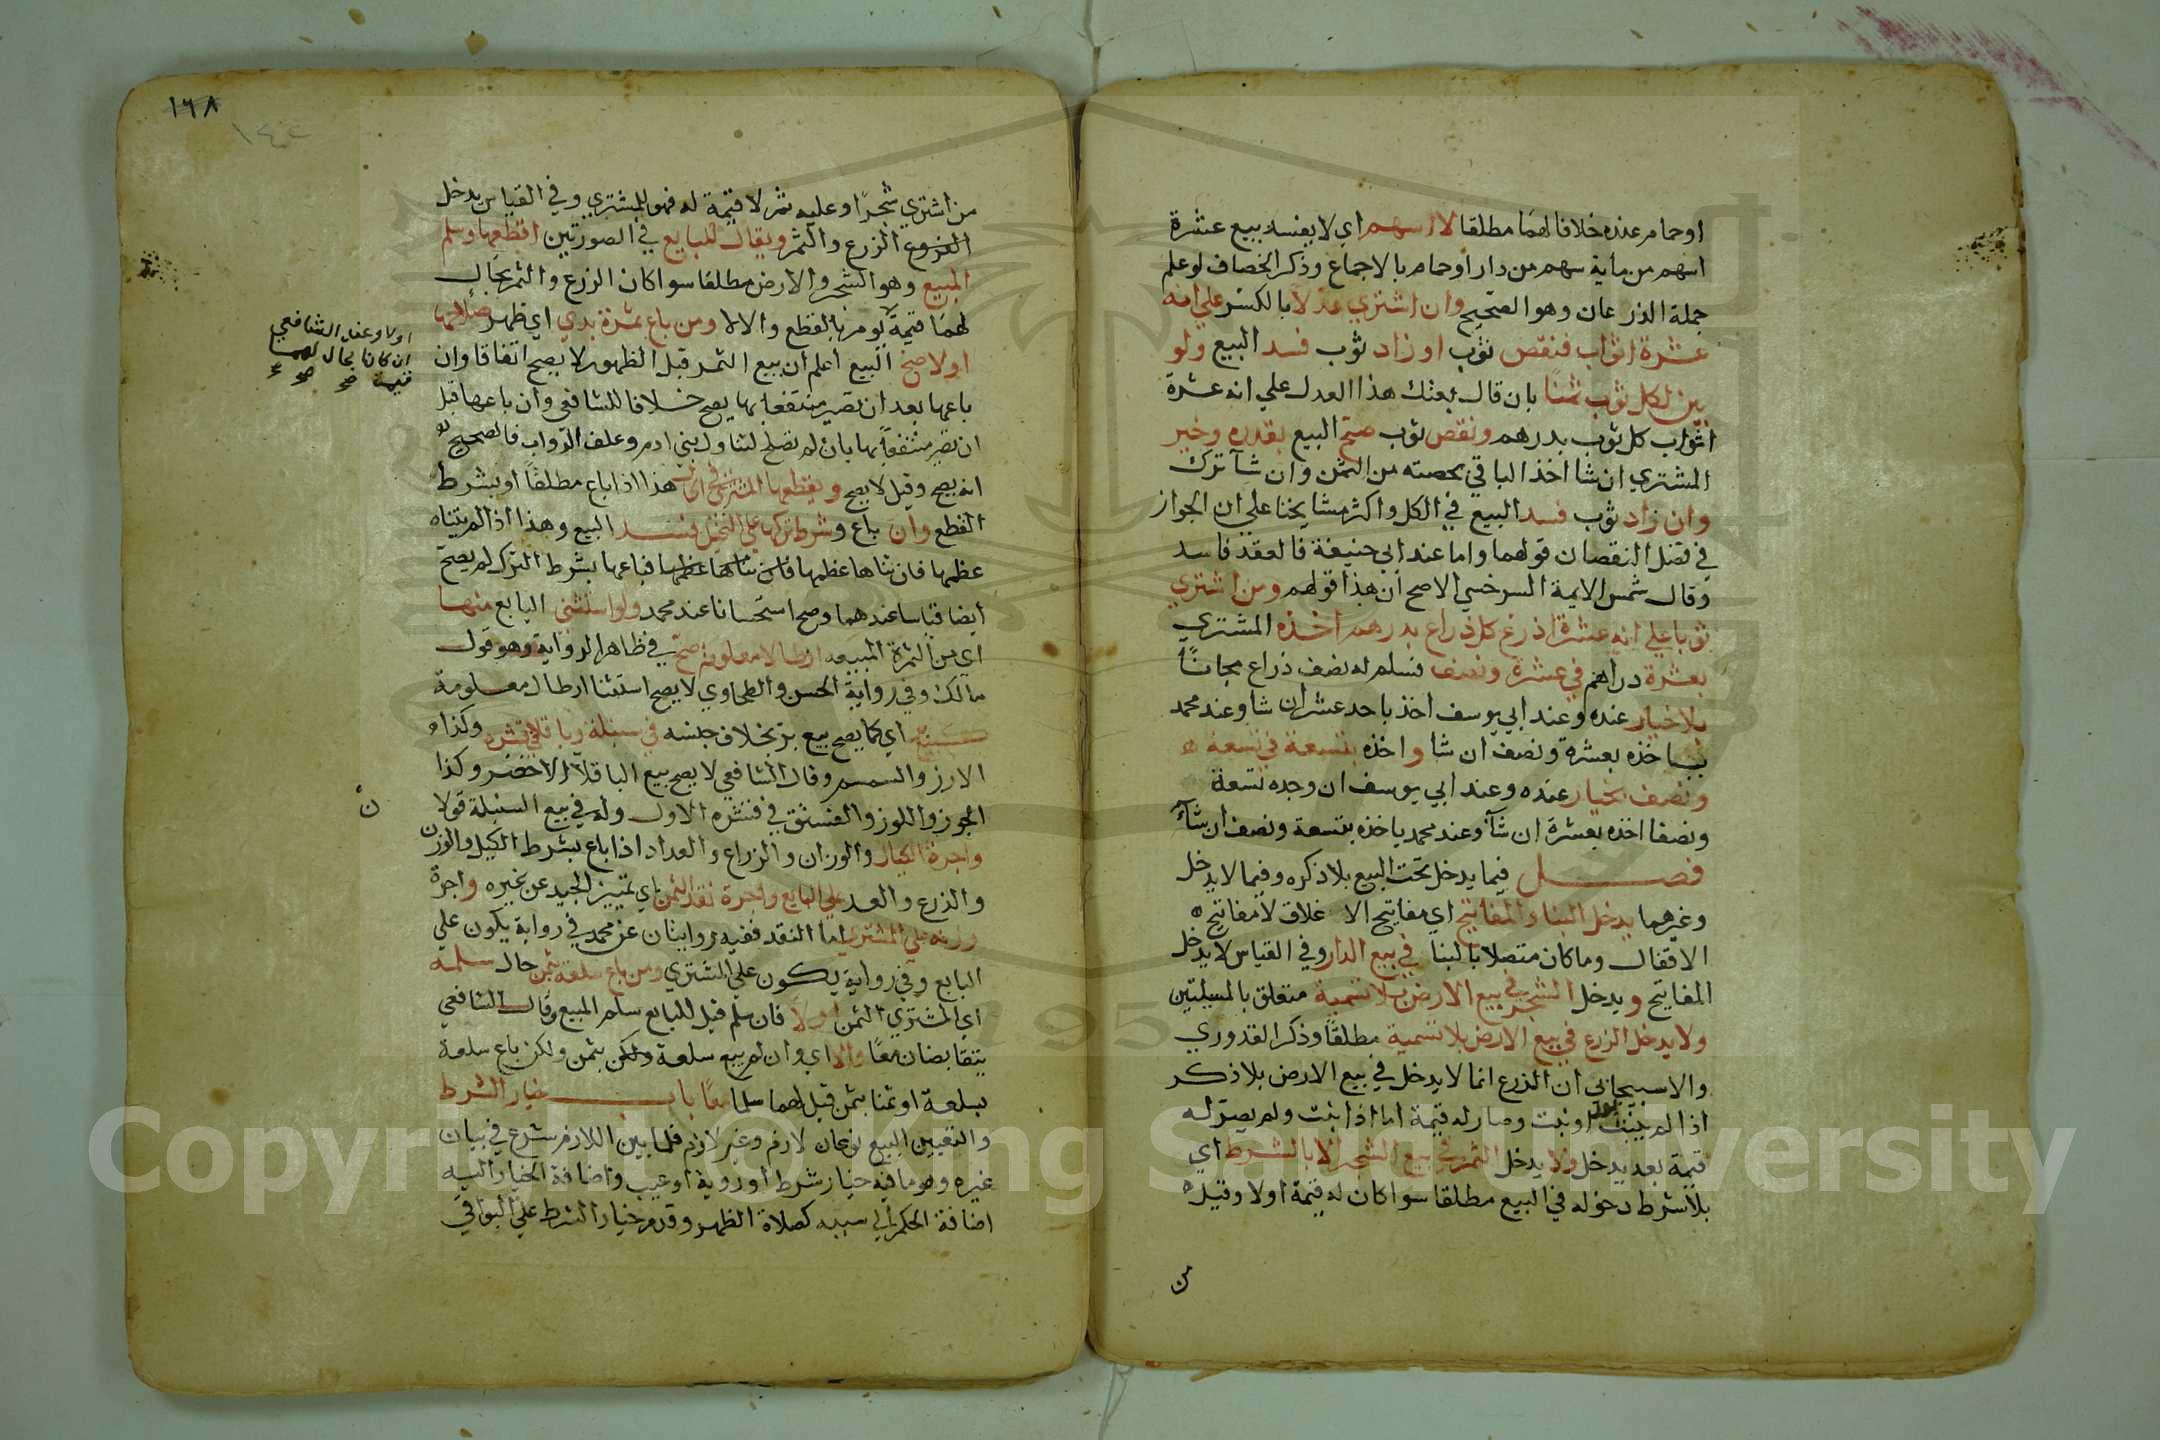 او حمام عنده خلافا لهما مطلقا لا اسهم اي لا يفسد بيع عشرة
اسهم من ماية سهم من دار او حمام بالاجماع وذكر الخصاف لو علم
جملة الذرعان وهو الصحيح وان اشتري عدلا بالكسر علي انه
عشرة اثواب فنقص ثوب او زاد ثوب فسد البيع ولو
بين لكل ثوب ثمنا بان قال بعتك هذا العدل علي انه عشرة
اثواب كل ثوب بدرهم ونقص ثوب صح البيع بقدره وخير
المشتري ان شا اخذ الباقي بحصته من الثمن وان شآ ترك
وان زاد ثوب فسد البيع في الكل واكثر مشايخنا علي ان الجواز
في فصل النقصان قولهما واما عند ابي حنيفة فالعقد فاسد
وقال شمس الايمة السرخسي الاصح ان هذا قولهم ومن اشتري
ثوبا علي انه عشرة اذرع كل ذراع بدرهم اخذه المشتري
بعشرة دراهم في عشرة ونصف فسلم له نصف ذراع مجانًا
بلا خيار عنده وعند ابي يوسف اخذ باحد عشر ان شا وعند محمد
ياخذه بعشرة ونصف ان شا واخذه بتسعة في تسعة
ونصف بخيار عنده وعند ابي يوسف ان وجده تسعة
ونصفا اخذه بعشرة ان شآ وعند محمد ياخذه بتسعة ونصف ان شآ
فصل فيما يدخل تحت البيع بلا ذكره وفيما لا يدخل
وغيرهما يدخل البنا والمفاتيح اي مفاتيح الاغلاق لا مفاتيح
الاقفال وما كان متصلا بالبنا في بيع الدار وفي القياس لا يدخل
المفاتيح ويدخل الشجر في بيع الارض بلا تسمية متعلق بالمسيلتين
ولا يدخل الزرع في بيع الارض بلا تسمية مطلقًا وذكر القدوري
والاسبيجابي ان الزرع انما لا يدخل في بيع الارض بلا ذكر
اذا لم ينبت بعد او نبت وصار له قيمة اما اذا نبت ولم يصر له
قيمة بعد يدخل ولا يدخل الثمر في بيع الشجر الا بالشرط اي
بلا شرط دخوله في البيع مطلقا سوا كان له قيمة اولا وقيل
من
١٦٨
من اشتري شجرًا وعليه ثمر لا قيمة له فهو للمشتري وفي القياس يدخل
الفروع الزرع والثمر ويقال للبايع في الصورتين اقطعها وسلم
المبيع وهو الشجر والارض مطلقا سوا كان الزرع والثمر بحال
لهما قيمة يومر بالقطع والا لا ومن باع ثمرة بدي اي ظهر صلاحها
اولا صح البيع اعلم ان بيع الثمر قبل الظهور لا يصح اتفاقا وان
باعها بعد ان تصير منتفعا بها يصح خلافا للشافعي وان باعها قبل
ان تصير منتفعا بها بان لم تصلح لتناول بني ادم وعلف الدواب فالصحيح
انه يصح وقيل لا يصح ويقطعها المشتري في الحال هذا اذا باع مطلقًا او بشرط
القطع وان باع وشرط تركها علي النخيل فسد البيع وهذا اذا لم يتناه
عظمها فان تناها عظمها فان تناها عظمها فباعها بشرط الترك لم يصح
ايضا قياسا عندهما وصح استحسانا عند محمد ولو استثني البايع منها
اي من الثمرة المبيعه ارطالا معلومة صح في ظاهر الرواية وهو قول
مالك وفي رواية الحسن والطحاوي لا يصح استثنا ارطال معلومة
اي كما يصح بيع بر بخلاف جنسه في سنبلة وباقلا في قشره وكذا
الارز والسمسم وقال الشافعي لا يصح بيع الباقلا الاخضر وكذا
الجوز واللوز والفستق في قشره الاول وله في بيع السنبلة قولا
ن
واجرة الكيال والوزان والزراع والعداد اذا باع بشرط الكيل والوزن
والذرع والعد علي البايع واجرة نقد الثمن اي تمييز الجيد عن غيره واجرة
وزنه علي المشتري اما النقد ففيه روايتان عن محمد في رواية يكون علي
البايع وفي رواية يكون علي المشتري ومن باع سلعة بثمن حال سلمه
اي المشتري الثمن اولا فان سلم قيل للبايع سلم المبيع وقال الشافعي
يتقابضان معًا والا اي وان لم يبع سلعة بثمن ولكن باع سلعة
بسلعة او ثمنا بثمن قيل لهما سلما معًا باب خيار الشرط
والتعيين البيع نوعان لازم وغير لازم فلما بين اللازم شرع في بيان
غيره وهو ما فيه خيار شرط او روية او عيب واضافة الخيار اليه
اضافة الحكم الي سببه كصلاة الظهر وقدم خيار الشرط علي البواقي
اولا وعند الشافعي
ان كانا بحال لهما
قيمة صح
Copyright © King Saud University